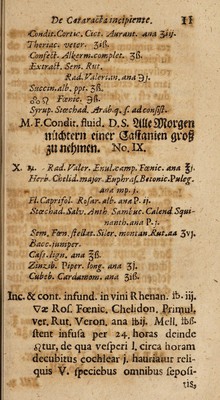 De Cataracta incipiente. 11
Condit. Cortic. Citt. Aurant. ana ʒiij.
Theriac. veter. ʒiß.
Confect. Alkerm. complet. ʒß.
Extract. Sem. Rut.
Rad. Valerian. ana ℈j.
Succin. alb. ppt. ʒß.
Fœnic. ℈ß.
Syrup. Stœchad. Arab. q. s. ad consist.
M. F. Condit. fluid. D. S. Alle Morgen
nüchtern einer Castanien groß
zu nehmen. No. IX.
X. ♃. Rad. Valer. Enul. camp. Fœnic. ana ℥j.
Herb. Chelid. major. Euphras. Betonic. Puleg.
ana mp. j.
Fl. Caprifol. Rosar. alb. ana P. ij.
Stœchad. Salv. Anth. Sambuc. Calend Squi-
nanth. ana P. j.
Sem. Fœn. Siler. montan. Rut. aa ʒvj.
Bacc. juniper.
Cass. lign. ana ℥ß.
Zinzib. Piper. long. ana ʒj.
Cubeb. Cardamom. ana ʒiß.
Inc. & cont. infund. in vini Rhenan. ℔. iij.
Ros. Fœnic. Chelidon. Primul.
ver. Rut. Veron. ana ℔ij. Mell. ℔ß
stent infusa per 24. horas deinde
tur, de qua vesperi l. circa horam
decubitus cochlear j. hauriatur reli-
quis V. speciebus omnibus seposi-
tis,